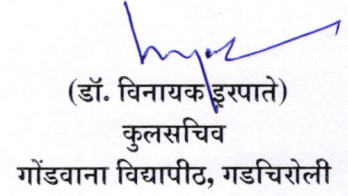 (डॉ. विनायक इरपाते)
कुलसचिव
गोंडवाना विद्यापीठ, गडचिरोली